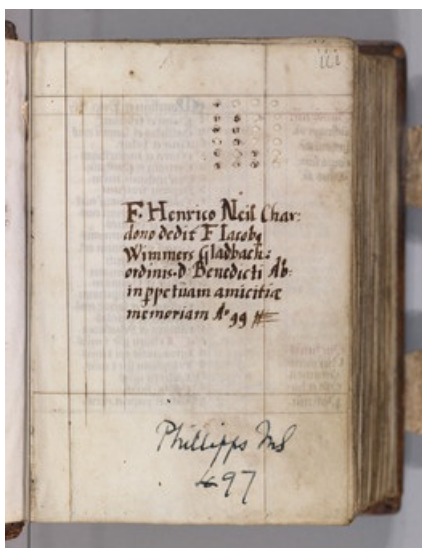 iii
F. Henrico Neil Char:
dono dedit F Iacobꝰ
Wimmers Gladbach:
ordinis. d. Benedicti Ab:
in ꝑpetuam amicitiæ
memoriam Aº 99
Phillipps MS
697